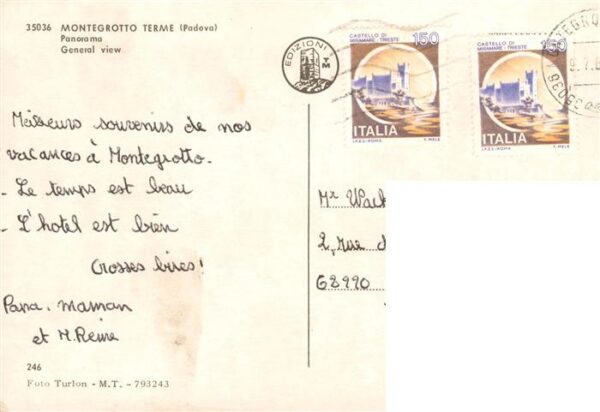 35036 MONTEGROTTO TERME (Padova)
Panorama
General view
EDIZIONI
TM
CASTELLO DI
MIRAMARE - TRIESTE
150
ITALIA
I.P.Z.S. - ROMA
CASTELLO DI
MIRAMARE - TRIESTE
ITALIA
I.P.Z.S. - ROMA
35036
Meilleurs souvenirs de nos
vacances à Montegrotto.
- Le temps est beau
- L'hotel est bien
Grosses bises!
Papa. Maman
et M. Reine
Mr
2, Rue
68990
246
Foto Turlon - M.T. - 793243